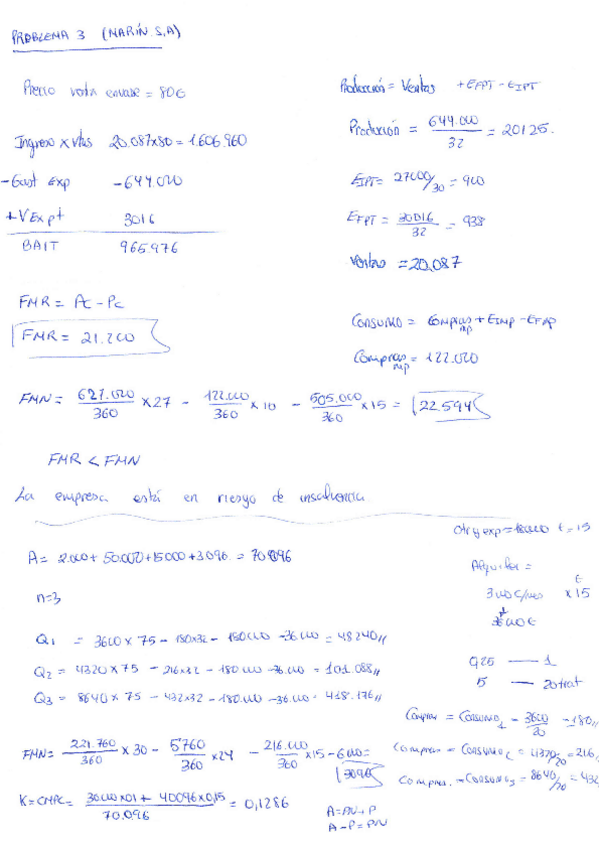 PROBLEMA 3 (MARÍN S.A)
Precio vta envase = 80€
Ingreso x vtas 20.087x80 = 1.606.960
- Gast Exp -644.000
+ V Exp t 3016
BAIT 965.976
Producción = Ventas + EFPT - EIPT
Producción = 644.000/32 = 20125.
EIPT = 27000/30 = 900
EFPT = 30016/32 = 938
Ventas = 20.087
FMR = Ac - Pc
FMR = 21.200
Consumo = Compras mp + EIMP - EFMP
Compras mp = 122.000
FMN = 627.000/360 x 27 - 122.000/360 x 10 - 505.000/360 x 15 = 22.594
FMR < FMN
La empresa está en riesgo de insolvencia.
A = 2.000 + 50.000 + 15.000 + 3.096 = 70.096
n=3
Q1 = 3600 x 75 - 180x32 - 180.000 - 36.000 = 48240
Q2 = 4320 x 75 - 216x32 - 180.000 - 36.000 = 101.088
Q3 = 8640 x 75 - 432x32 - 180.000 - 36.000 = 418.176
Otrg exp = 180000 t = 15
Alquiler =
3000€/mes x 15
36000€
0,25 — 1
5 — 20 trat
Compras = Consumo1 = 3600/20 = 180
Compras = Consumo2 = 4320/20 = 216
Compras = Consumo3 = 8640/20 = 432
FMN = 221.760/360 x 30 - 5760/360 x 24 - 216.000/360 x 15 - 6.000 = 3096
K = CMPC = 30.000x0,1 + 40096x0,15 / 70.096 = 0,1286
A = PN + P
A - P = PN